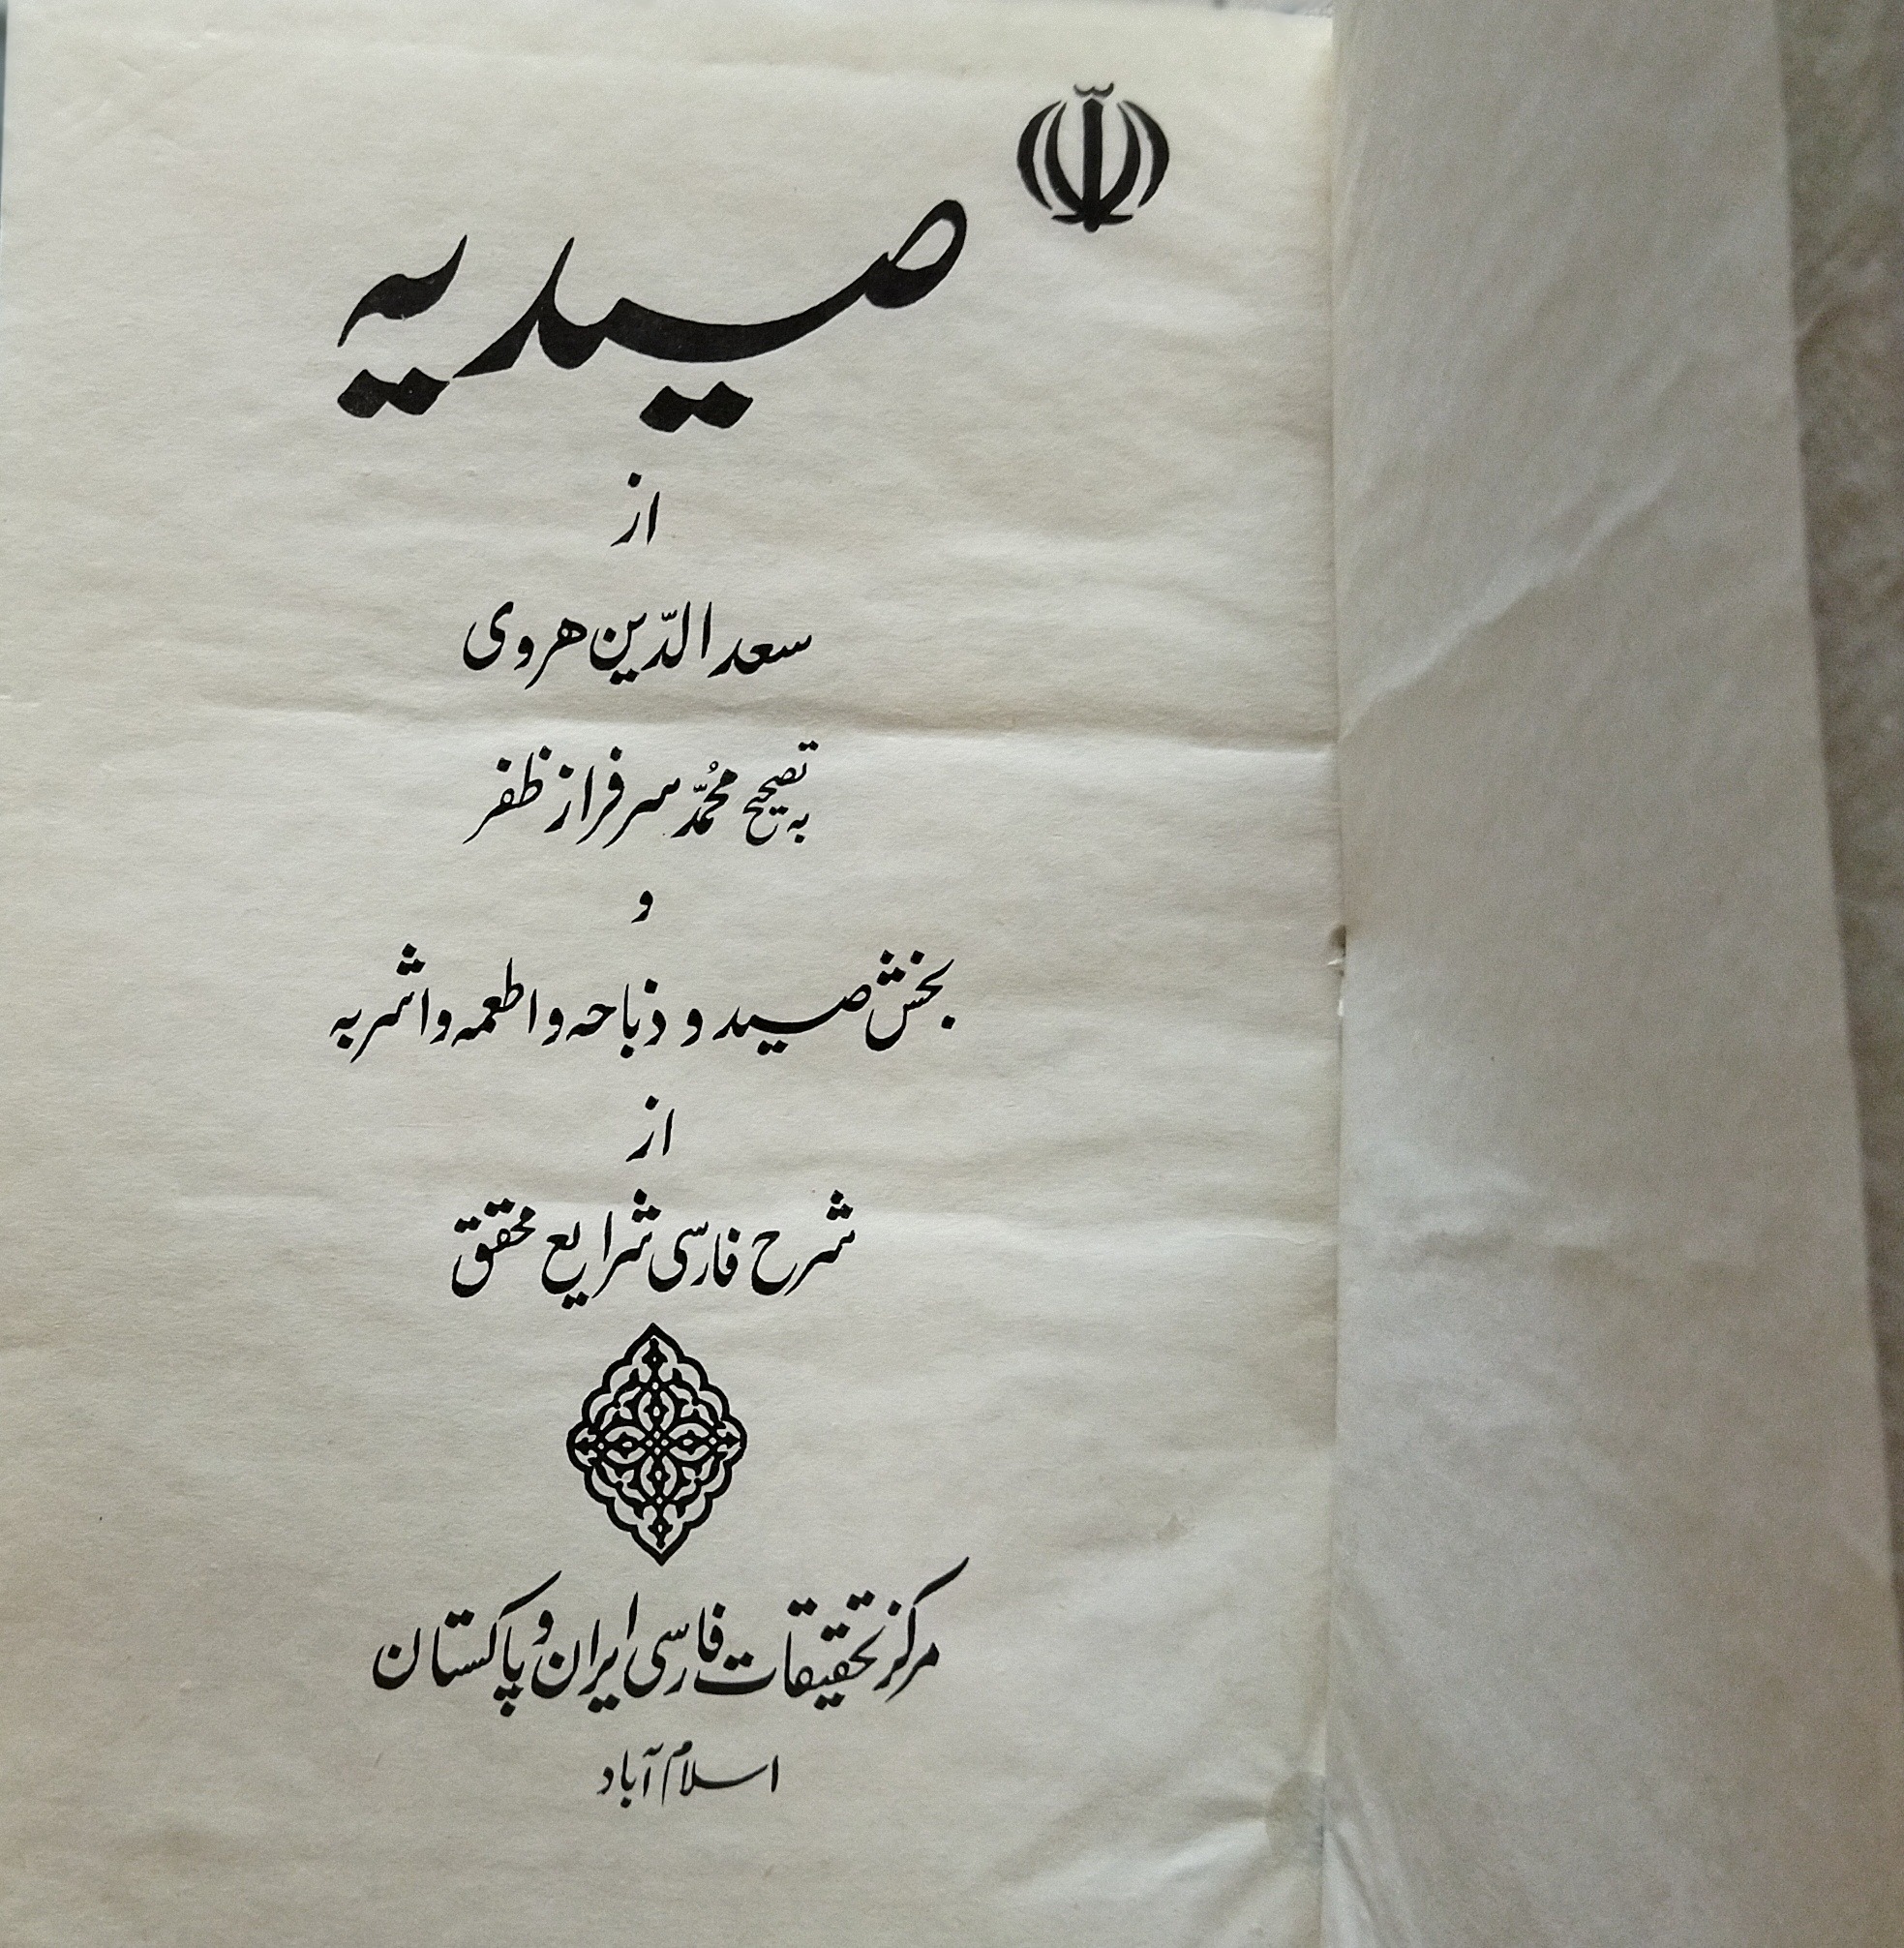 صیدیه
از
سعد الدّین هروی
به تصحیح محمّد سرفراز ظفر
و
بخش صید و ذباحه و اطعمه و اشربه
از
شرح فارسی شرایع محقق
مرکز تحقیقات فارسی ایران و پاکستان
اسلام آباد